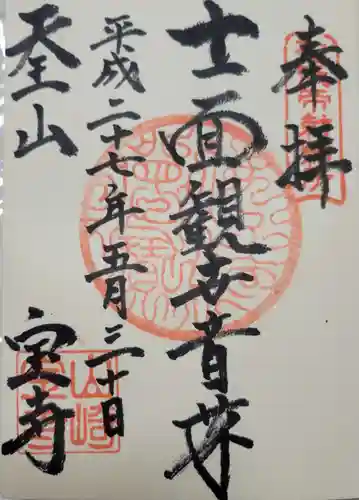 奉拝
十一面観世音菩薩
平成二十七年五月三十日
天王山
宝寺
山崎